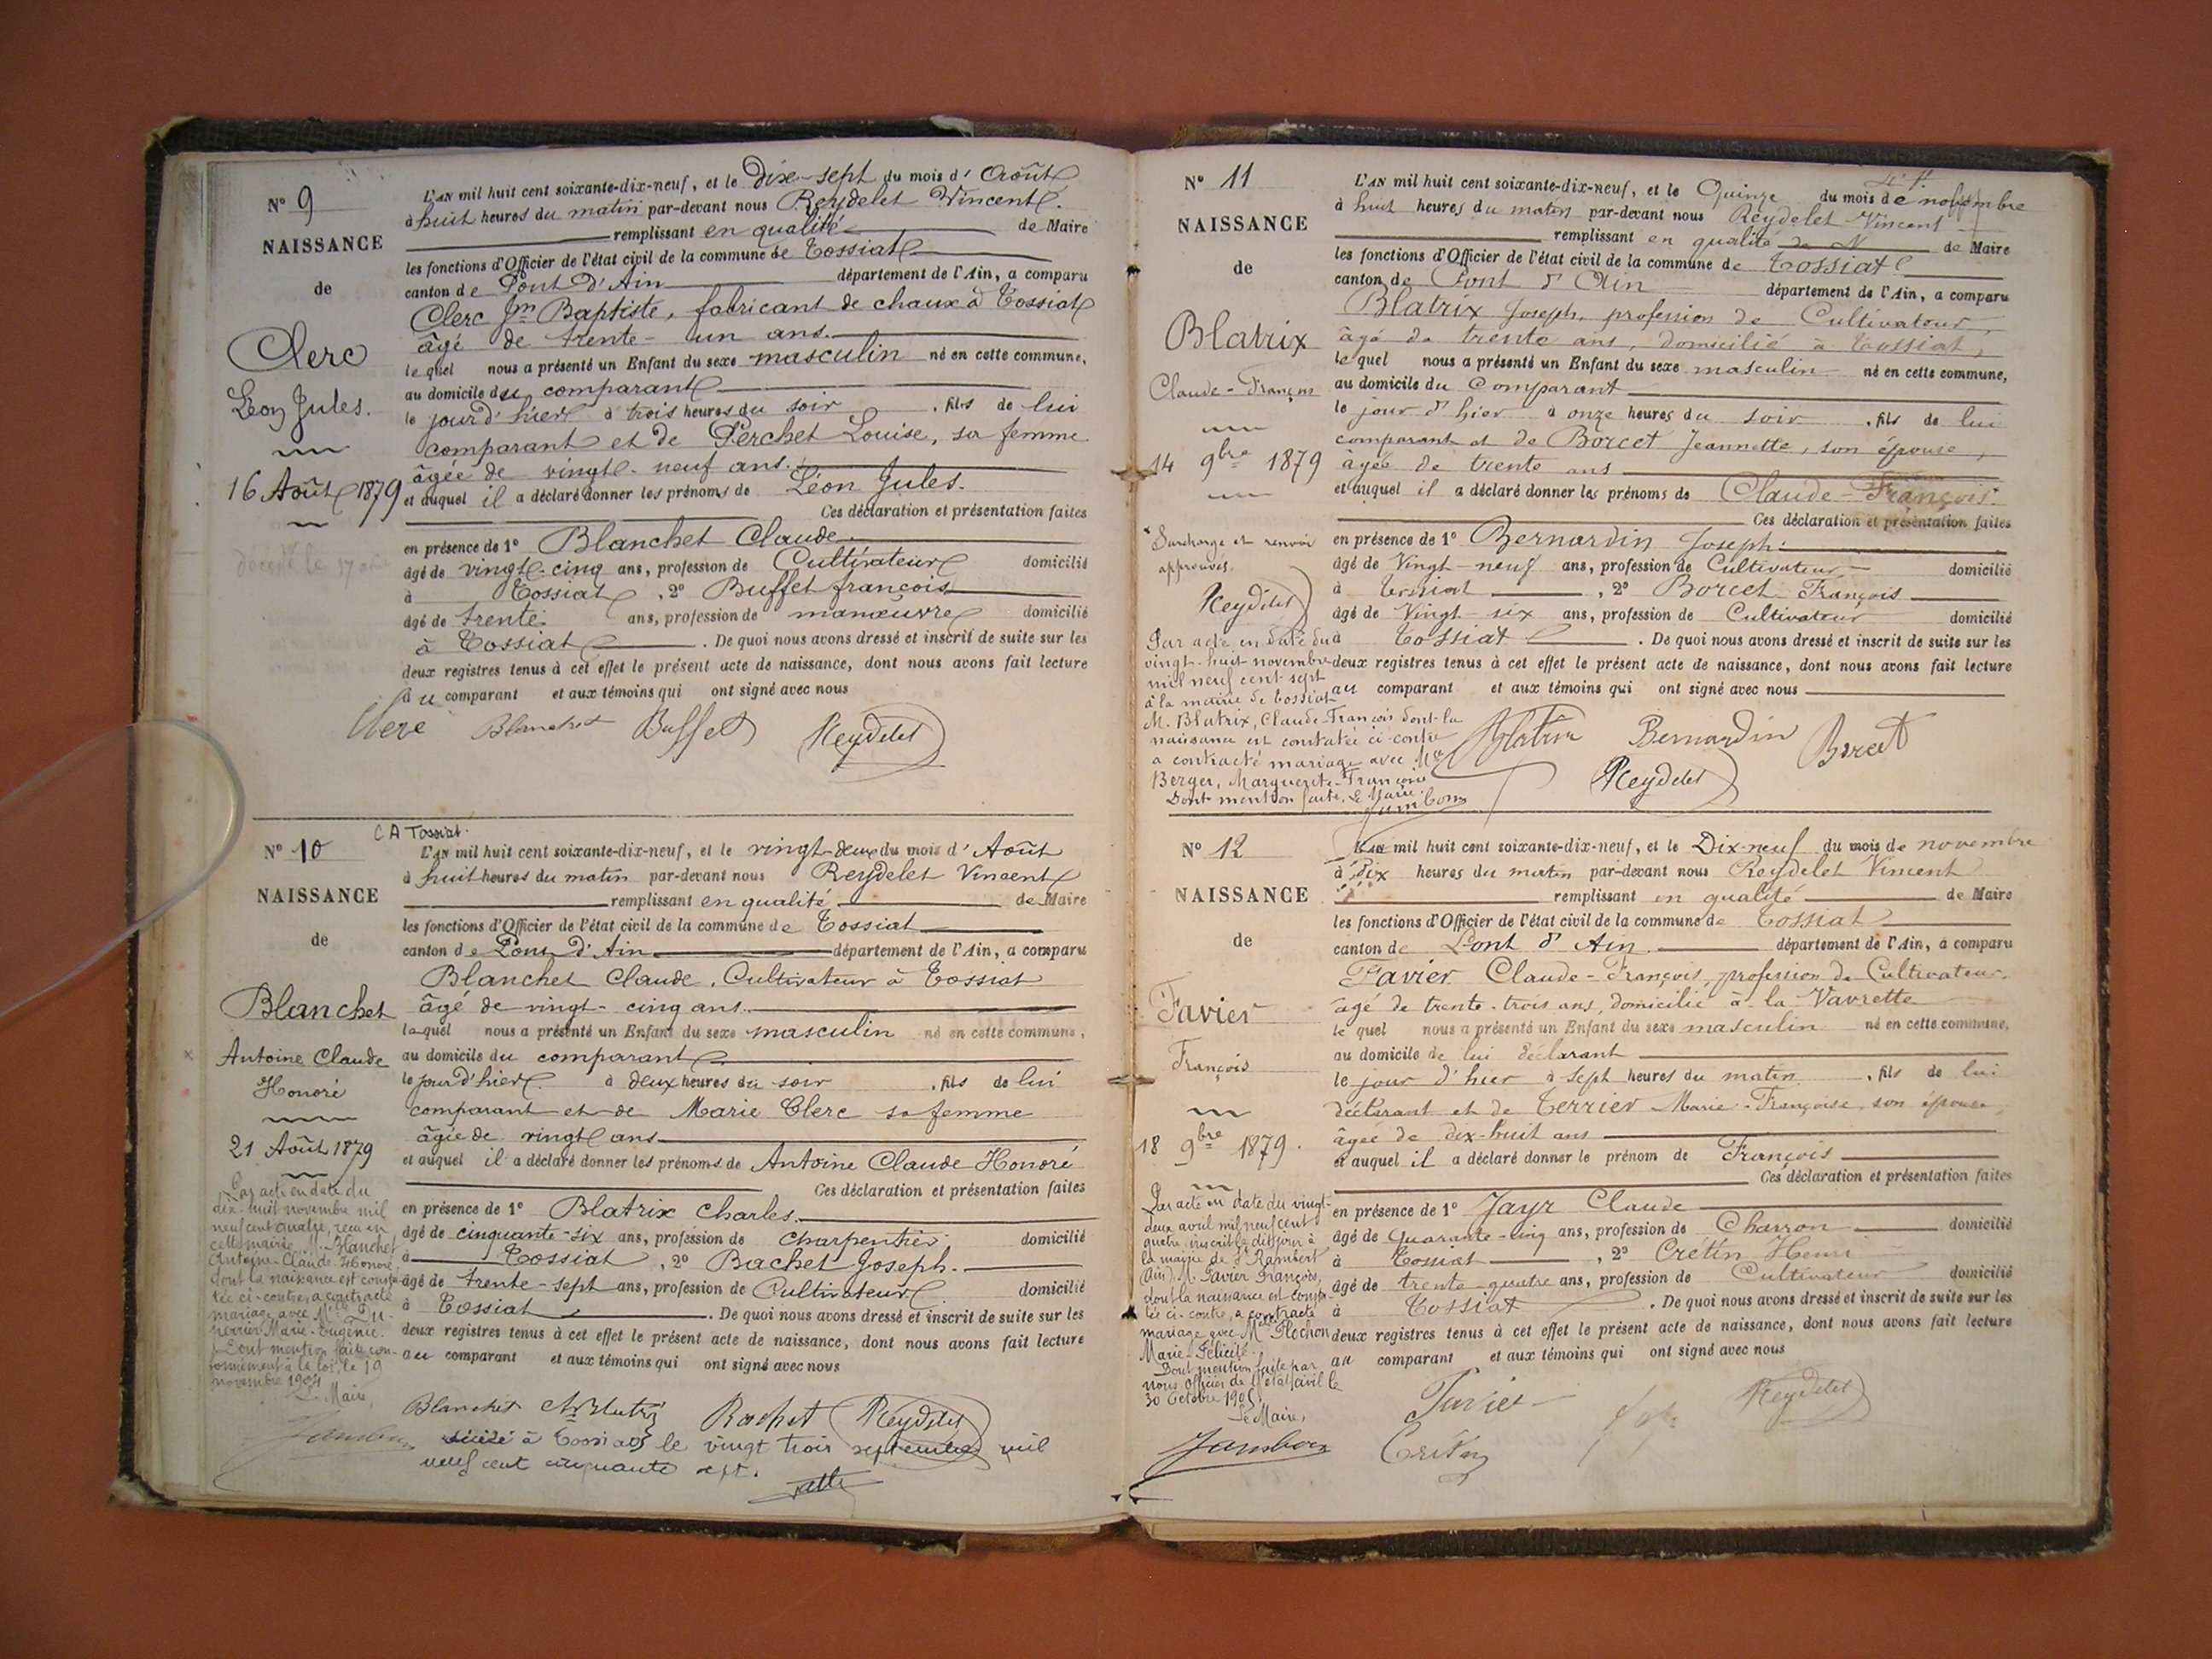 N° 9
NAISSANCE
de
Clerc
Léon Jules.
16 Août 1879
L'AN mil huit cent soixante-dix-neuf, et le dix-sept du mois d'Août
à huit heures du matin par-devant nous Reydelet Vincent.
remplissant en qualité de Maire
les fonctions d'Officier de l'état civil de la commune de Tossiat
canton de Pont d'Ain département de l'Ain, a comparu
Clerc Jn Baptiste, fabricant de chaux à Tossiat
âgé de trente-un ans.
lequel nous a présenté un Enfant du sexe masculin né en cette commune,
au domicile du comparant
le jour d'hier à trois heures du soir, fils de lui
comparant et de Perchet Louise, sa femme
âgée de vingt-neuf ans.
et auquel il a déclaré donner les prénoms de Léon Jules.
Ces déclaration et présentation faites
en présence de 1° Blanchet Claude
âgé de vingt-cinq ans, profession de Cultivateur domicilié
à Tossiat, 2° Buffet françois
âgé de trente ans, profession de manœuvre domicilié
à Tossiat. De quoi nous avons dressé et inscrit de suite sur les
deux registres tenus à cet effet le présent acte de naissance, dont nous avons fait lecture
au comparant et aux témoins qui ont signé avec nous
Clerc Blanchet Buffet Reydelet
N° 10
NAISSANCE
de
Blanchet
Antoine Claude
Honoré
21 Août 1879
Par acte en date du
dix-huit novembre mil
neuf cent quatre, reçu en
cette mairie M. Blanchet
Antoine-Claude-Honoré,
dont la naissance est consta-
tée ci-contre, a contracté
mariage avec Mlle Du-
perrier Marie-Eugénie.
Dont mention faite con-
formément à la loi, le 19
novembre 1904
Le Maire,
Jambon
C A Tossiat.
L'AN mil huit cent soixante-dix-neuf, et le vingt-deux du mois d'Août
à huit heures du matin par-devant nous Reydelet Vincent
remplissant en qualité de Maire
les fonctions d'Officier de l'état civil de la commune de Tossiat
canton de Pont d'Ain département de l'Ain, a comparu
Blanchet Claude, Cultivateur à Tossiat
âgé de vingt-cinq ans.
lequel nous a présenté un Enfant du sexe masculin né en cette commune,
au domicile du comparant
le jour d'hier à deux heures du soir, fils de lui
comparant et de Marie Clerc sa femme
âgée de vingt ans
et auquel il a déclaré donner les prénoms de Antoine Claude Honoré
Ces déclaration et présentation faites
en présence de 1° Blatrix Charles.
âgé de cinquante-six ans, profession de charpentier domicilié
à Tossiat, 2° Bachet Joseph.
âgé de trente-sept ans, profession de Cultivateur domicilié
à Tossiat. De quoi nous avons dressé et inscrit de suite sur les
deux registres tenus à cet effet le présent acte de naissance, dont nous avons fait lecture
au comparant et aux témoins qui ont signé avec nous
Blanchet Blatrix Bachet Reydelet
décédé à Tossiat le vingt trois septembre mil
neuf cent cinquante sept.
N° 11
NAISSANCE
de
Blatrix
Claude-François
14 9bre 1879
Surcharge et renvoi
approuvés.
Reydelet
Par acte en date du
vingt-huit novembre
mil neuf cent sept
à la mairie de Tossiat
M. Blatrix, Claude-François dont la
naissance est constatée ci-contre
a contracté mariage avec Mlle
Berger, Marguerite-Françoise
Dont mention faite, Le Maire.
Jambon
L'AN mil huit cent soixante-dix-neuf, et le Quinze du mois de novembre
à huit heures du matin par-devant nous Reydelet Vincent
remplissant en qualité de Maire
les fonctions d'Officier de l'état civil de la commune de Tossiat
canton de Pont d'Ain département de l'Ain, a comparu
Blatrix Joseph, profession de Cultivateur,
âgé de trente ans, domicilié à Tossiat,
lequel nous a présenté un Enfant du sexe masculin né en cette commune,
au domicile du Comparant
le jour d'hier à onze heures du soir, fils de lui
comparant et de Borcet Jeannette, son épouse,
âgée de trente ans
et auquel il a déclaré donner les prénoms de Claude-François.
Ces déclaration et présentation faites
en présence de 1° Bernardin Joseph
âgé de Vingt-neuf ans, profession de Cultivateur domicilié
à Tossiat, 2° Borcet François
âgé de Vingt-six ans, profession de Cultivateur domicilié
à Tossiat. De quoi nous avons dressé et inscrit de suite sur les
deux registres tenus à cet effet le présent acte de naissance, dont nous avons fait lecture
au comparant et aux témoins qui ont signé avec nous
Blatrix Bernardin Borcet
Reydelet
N° 12
NAISSANCE
de
Favier
François
18 9bre 1879.
Par acte en date du vingt-
deux avril mil neuf cent
quatre, inscrit le dit jour à
la mairie de St Rambert
(Ain), M. Favier François,
dont la naissance est consta-
tée ci-contre, a contracté
mariage avec Mlle Plochon
Marie-Félicité.
Dont mention faite par
nous Officier de l'état civil le
30 Octobre 1905
Le Maire,
Jambon
L'AN mil huit cent soixante-dix-neuf, et le Dix-neuf du mois de novembre
à Dix heures du matin par-devant nous Reydelet Vincent
remplissant en qualité de Maire
les fonctions d'Officier de l'état civil de la commune de Tossiat
canton de Pont d'Ain département de l'Ain, a comparu
Favier Claude-François, profession de Cultivateur,
âgé de trente-trois ans, domicilié à la Vavrette
lequel nous a présenté un Enfant du sexe masculin né en cette commune,
au domicile de lui déclarant
le jour d'hier à Sept heures du matin, fils de lui
déclarant et de Terrier Marie-Françoise, son épouse,
âgée de dix-huit ans
et auquel il a déclaré donner le prénom de François
Ces déclaration et présentation faites
en présence de 1° Jayr Claude
âgé de Quarante-cinq ans, profession de Charron domicilié
à Tossiat, 2° Crétin Henri
âgé de trente-quatre ans, profession de Cultivateur domicilié
à Tossiat. De quoi nous avons dressé et inscrit de suite sur les
deux registres tenus à cet effet le présent acte de naissance, dont nous avons fait lecture
au comparant et aux témoins qui ont signé avec nous
Favier Reydelet
Crétin